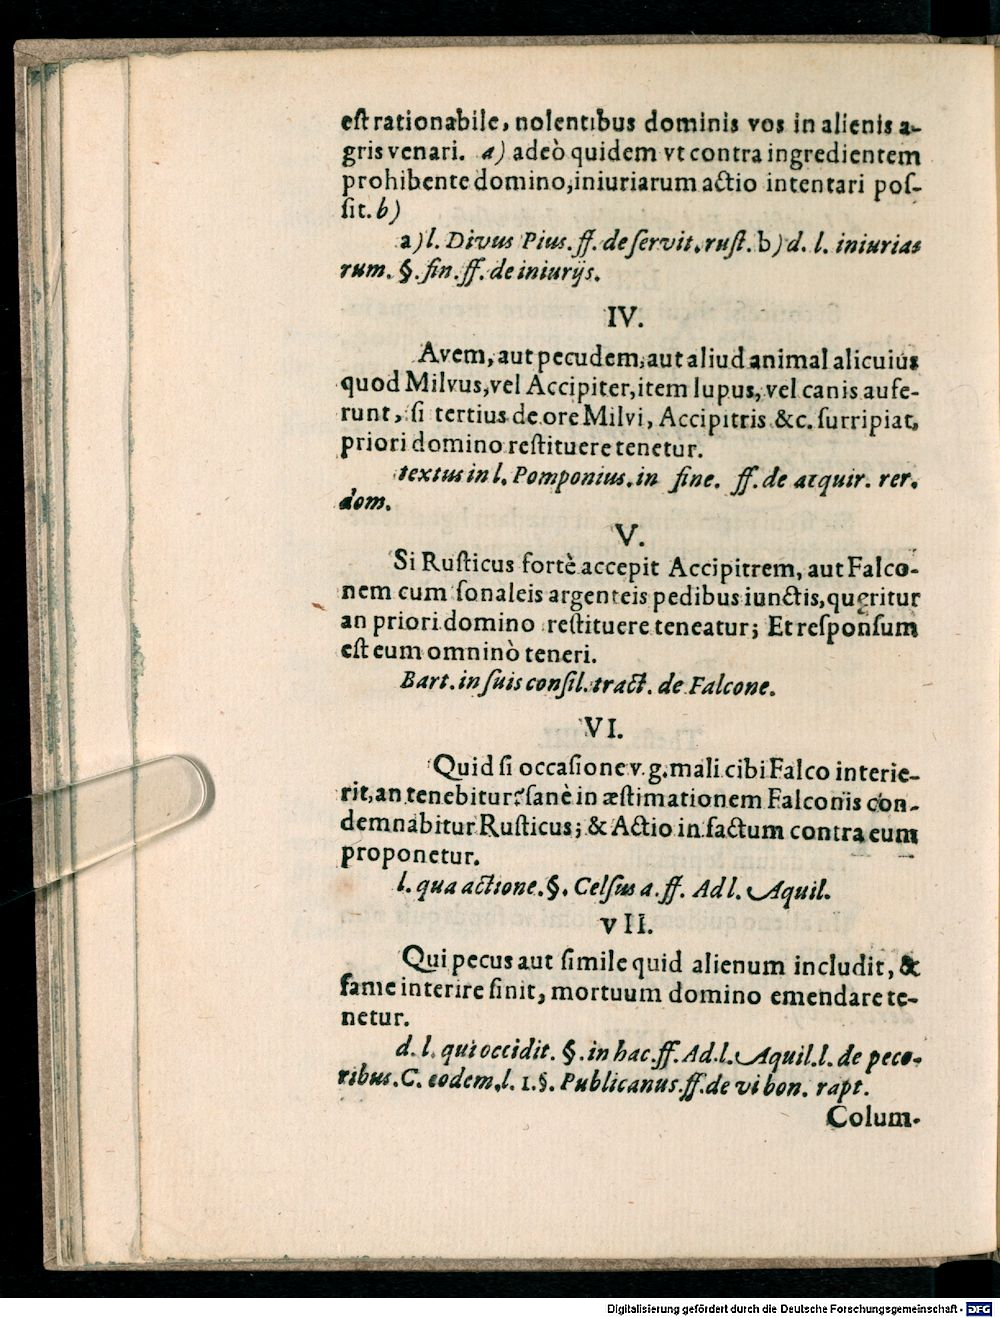 eſt rationabile, nolentibus dominis vos in alienis a-
gris venari. a) adeò quidem vt contra ingredientem
prohibente domino, iniuriarum actio intentari poſ-
ſit. b)
a) l. Divus Pius. ff. de ſervit. ruſt. b) d. l. iniurias
rum. §. fin. ff. de iniurijs.
IV.
Avem, aut pecudem, aut aliud animal alicuius
quod Milvus, vel Accipiter, item lupus, vel canis aufe-
runt, ſi tertius de ore Milvi, Accipitris &c. ſurripiat,
priori domino reſtituere tenetur.
textus in l. Pomponius. in fine. ff. de acquir. rer.
dom.
V.
Si Ruſticus fortè accepit Accipitrem, aut Falco-
nem cum ſonaleis argenteis pedibus iunctis, quęritur
an priori domino reſtituere teneatur; Et reſponſum
eſt eum omninò teneri.
Bart. in ſuis conſil. tract. de Falcone.
VI.
Quid ſi occaſione v. g. mali cibi Falco interie-
rit, an tenebitur? ſanè in æſtimationem Falconis con-
demnabitur Ruſticus; & Actio in factum contra eum
proponetur.
l. qua actione. §. Celſus a. ff. Ad l. Aquil.
VII.
Qui pecus aut ſimile quid alienum includit, &
fame interire ſinit, mortuum domino emendare te-
netur.
d. l. qui occidit. §. in hac. ff. Ad. l. Aquil. l. de peco-
ribus. C. eodem, l. 1. §. Publicanus. ff. de vi bon. rapt.
Colum-
Digitalisierung gefördert durch die Deutsche Forschungsgemeinschaft - DFG